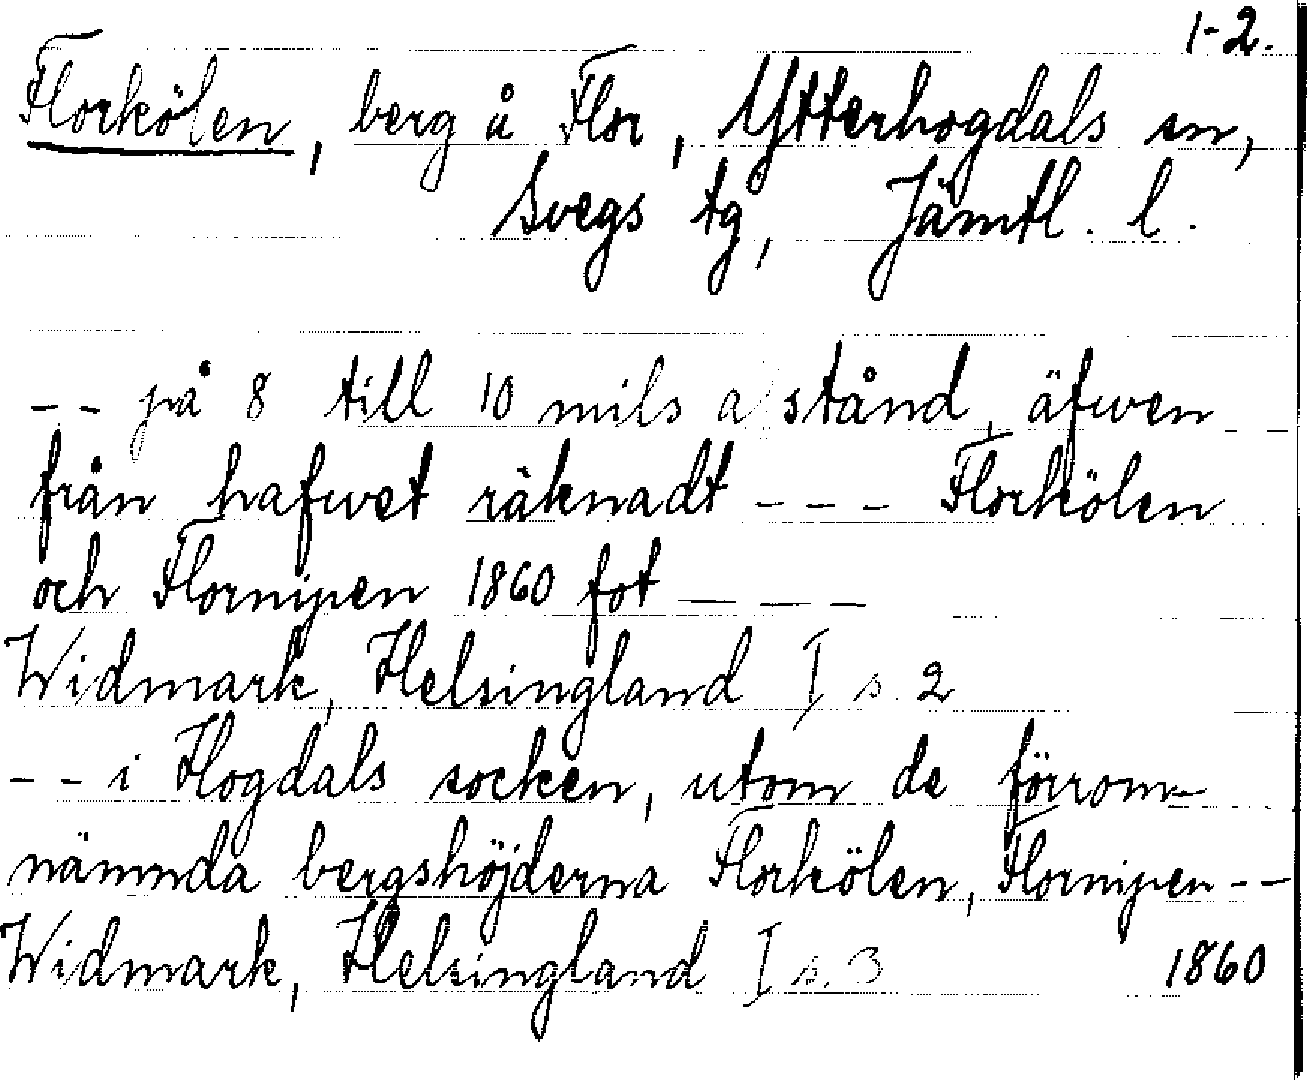 1-2.
Florkölen, berg å Flor, Ytterhogdals sn,
Svegs tg, Jämtl. l.
-- på 8 till 10 mils a stånd, äfwen
från hafwet räknadt --- Florkölen
och Flornipen 1860 fot ---
Widmark, Helsingland I s. 2
-- i Hogdals socken, utom de förrom-
nämnda bergshöjderna Florkölen, Flornipen --
Widmark, Helsingland I s. 3 1860